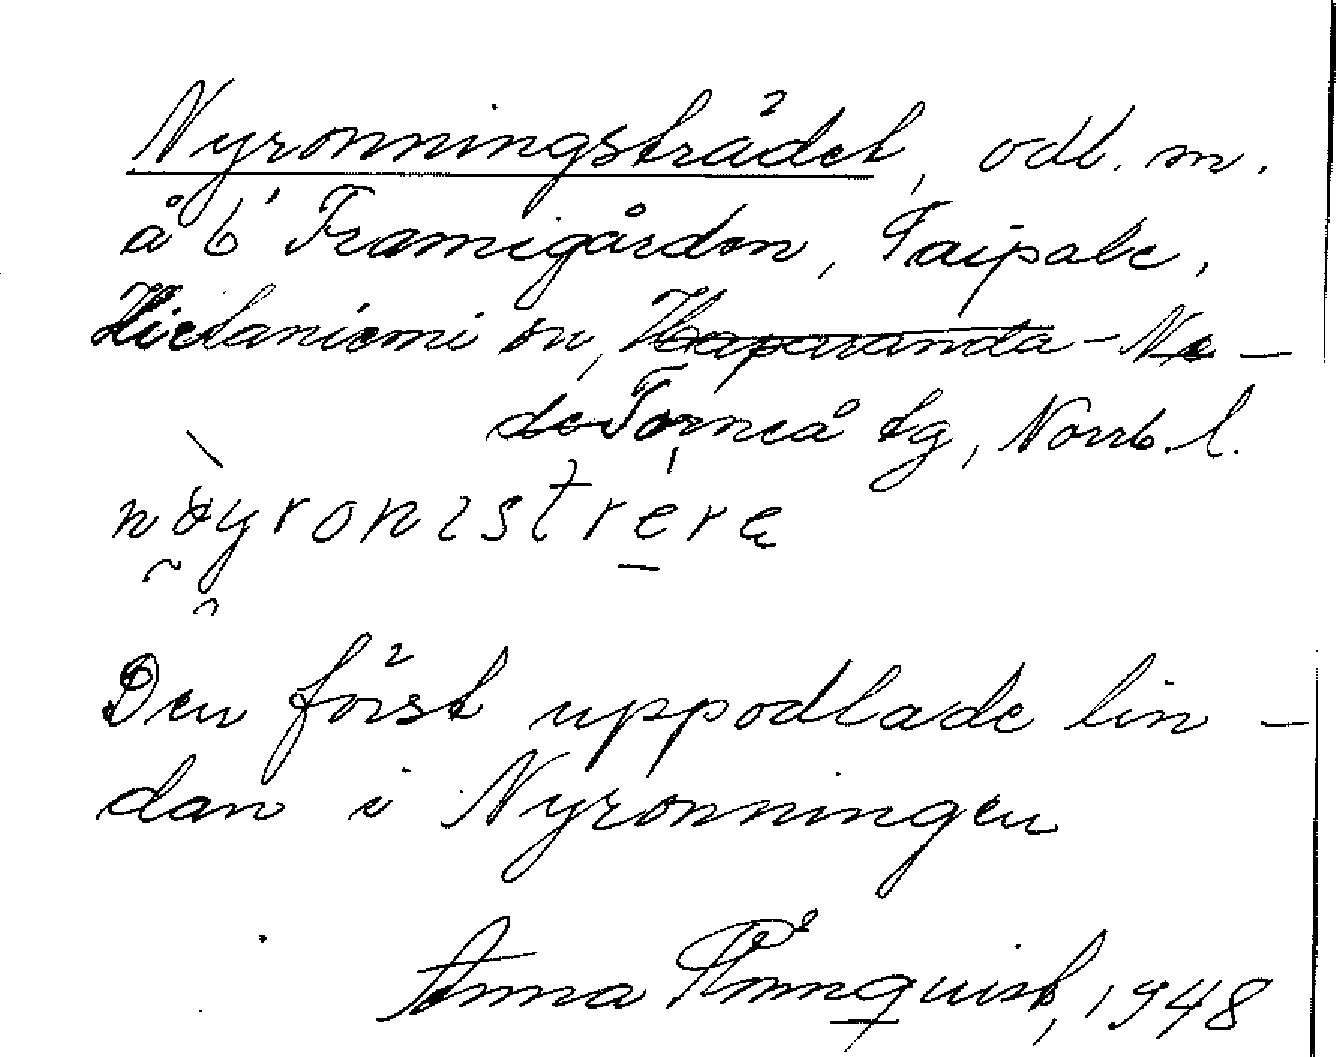 Nyronningsträdet, odl. m.
å b' Framigården, Taipale,
Hietaniemi sn, Haparanda-Ne-
de Torneå tg, Norrb. l.
Den först uppodlade lin-
dan i Nyronningen
Anna Rönnquist, 1948